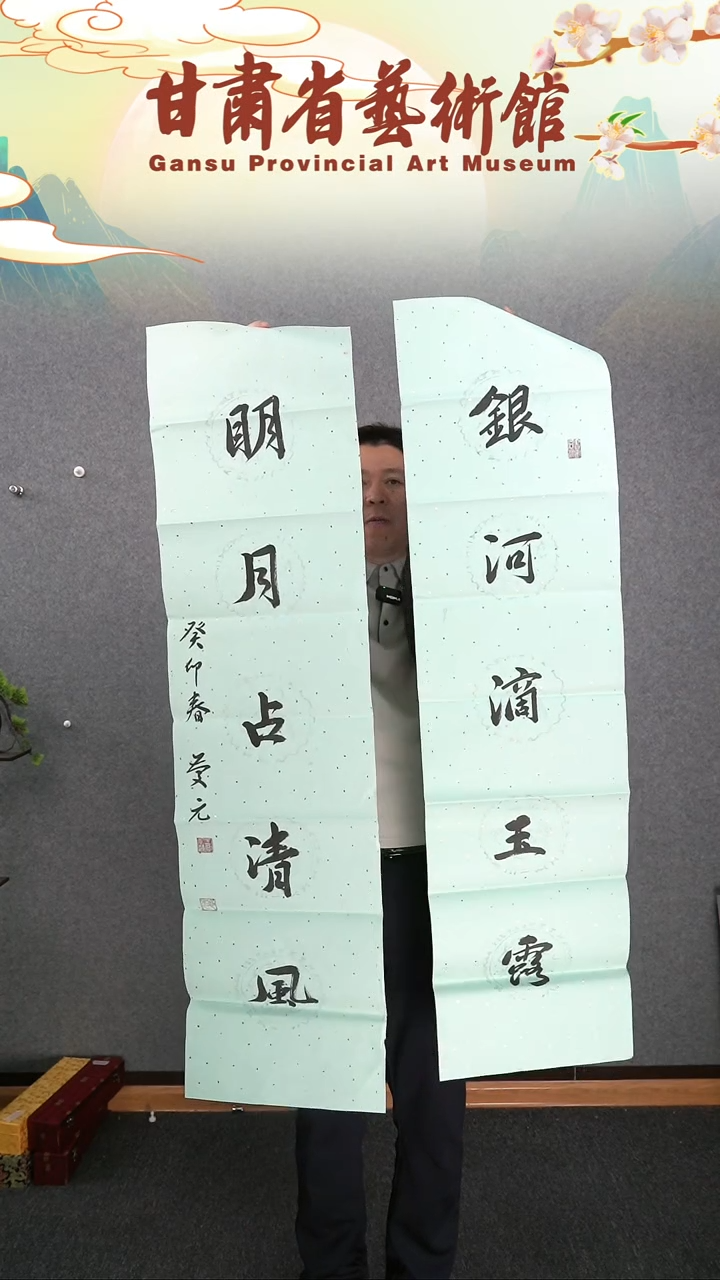 甘肅省藝術館
Gansu Provincial Art Museum
銀河滴玉露
明月占清風
癸卯春
元